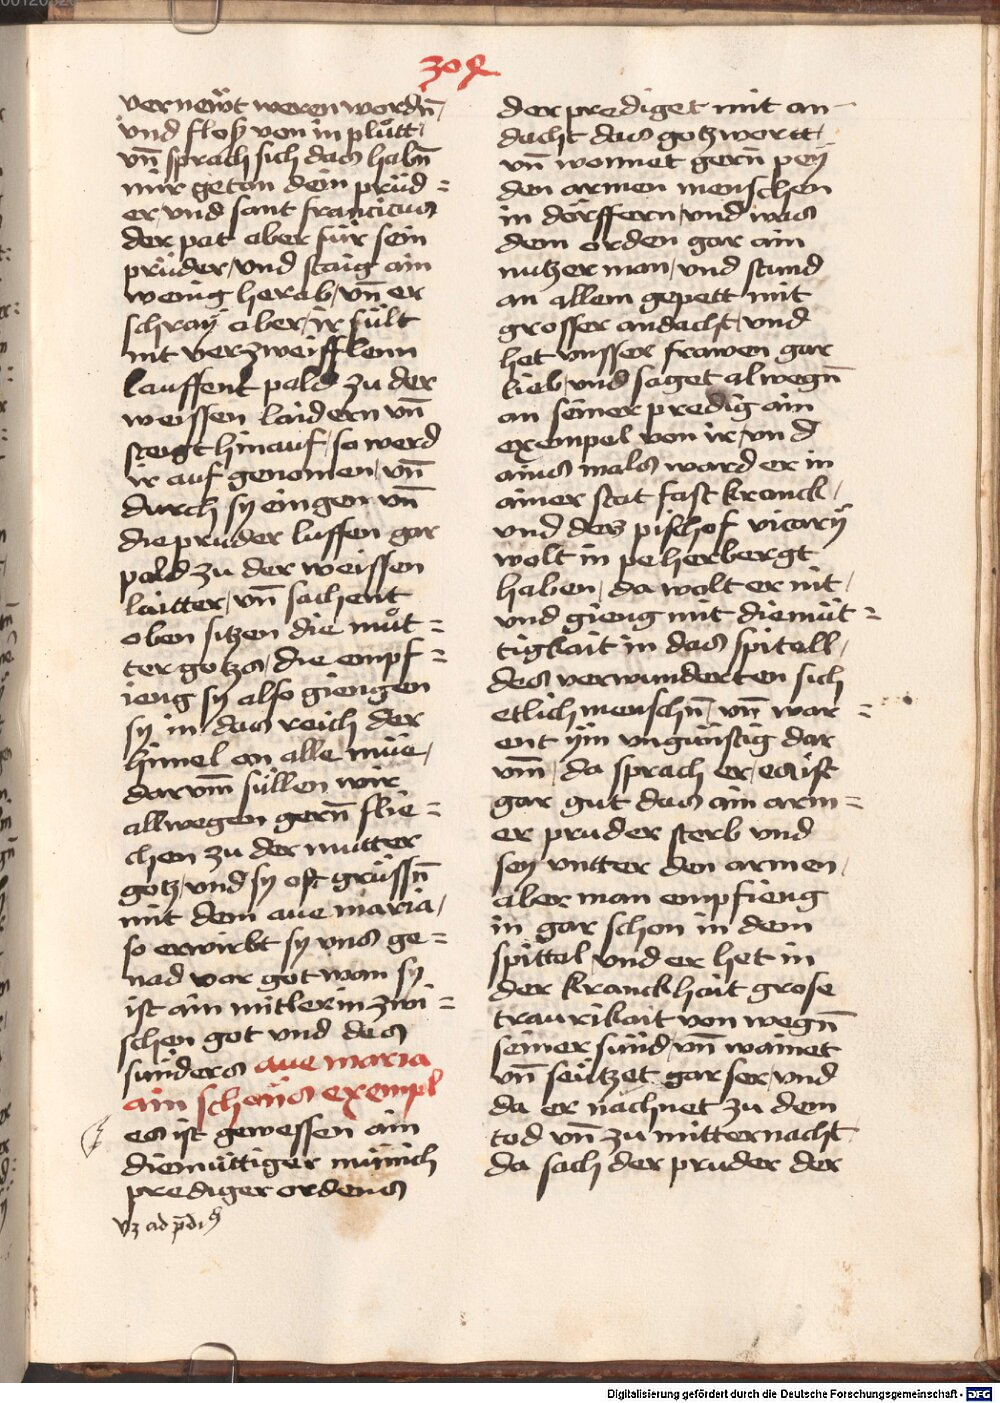 304
vernewt weren wordn̄,
vnd floß von in plůtt,
vn̄ sprach sich das habn̄
mir getan dein průd=
er, vnd sant francicus
der pat aber für sein
prüder, vnd staig ain
wenig herab, vn̄ er
schraÿ aber, ir sült
nit verzweifflenn
lauffent pald zu der
weissen laidern vn̄
steigt hinauf, so werd
ir auf genomen, vn̄
durch sy eingen vn̄
die pruder luffen gar
pald zu der weissen
laitter, vn̄ sachent
oben sitzen die můt=
ter gotzs, die empf=
ieng sy also giengen
sy in das reich der
himel on alle müe,
darvm̄ süllen wir
allwegen gern̄ flie=
chen zu der mutter
gotz, vnd sy oft grüssn̄
mit dem aue maria,
so erwirbt sy vns ge=
nad vor got wan sy
ist ain mitlerin zwi=
schen got vnd des
sünders aue maria
ain schöns exempl
es ist gewessen ain
diemüttiger münich
prediger ordens
der prediget mit an-
dacht das gotz wortt,
vn̄ wonnet gern̄ peÿ
den armen menschen
in dörffern, vnd was
dem orden gar ain
nutzer man, vnd stund
an allem gepett mit
grosser andacht, vnd
het vnsser frawen gar
lieb, vnd saget alwegn̄
an seiner predig ain
exempel von ir, vnd
ains mals ward er in
ainer stat fast kranck,
vnd des pischof vicarÿ
wolt in peherbergt
haben, da wolt er nit,
vnd gieng mit diemüt=
tigkait in das spitall,
des verwunderten sich
etlich menschn̄, vn̄ war=
ent ym vngünstig dar
vm̄, da sprach er, es ist
gar gut das ain arm=
er pruder sterb vnd
sey vntter den armen,
aber man empfieng
in gar schon in dem
spittel, vnd er het in
der kranckhait grose
traurikait von wegn̄
seiner sünd, vn̄ wainet
vn̄ seützet gar ser, vnd
da er nachnet zu dem
tod vn̄ zu mitternacht
da sach der pruder der
Digitalisierung gefördert durch die Deutsche Forschungsgemeinschaft - DFG